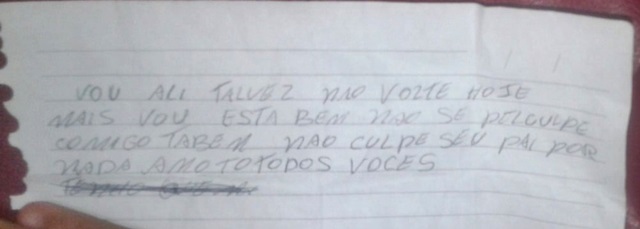 VOU ALI TALVEZ NAO VOLTE HOJE
MAIS VOU ESTA BEM NAO SE
COMIGO TABEM NAO CULPE SEU PAI POR
NADA AMO TOTODOS VOCES